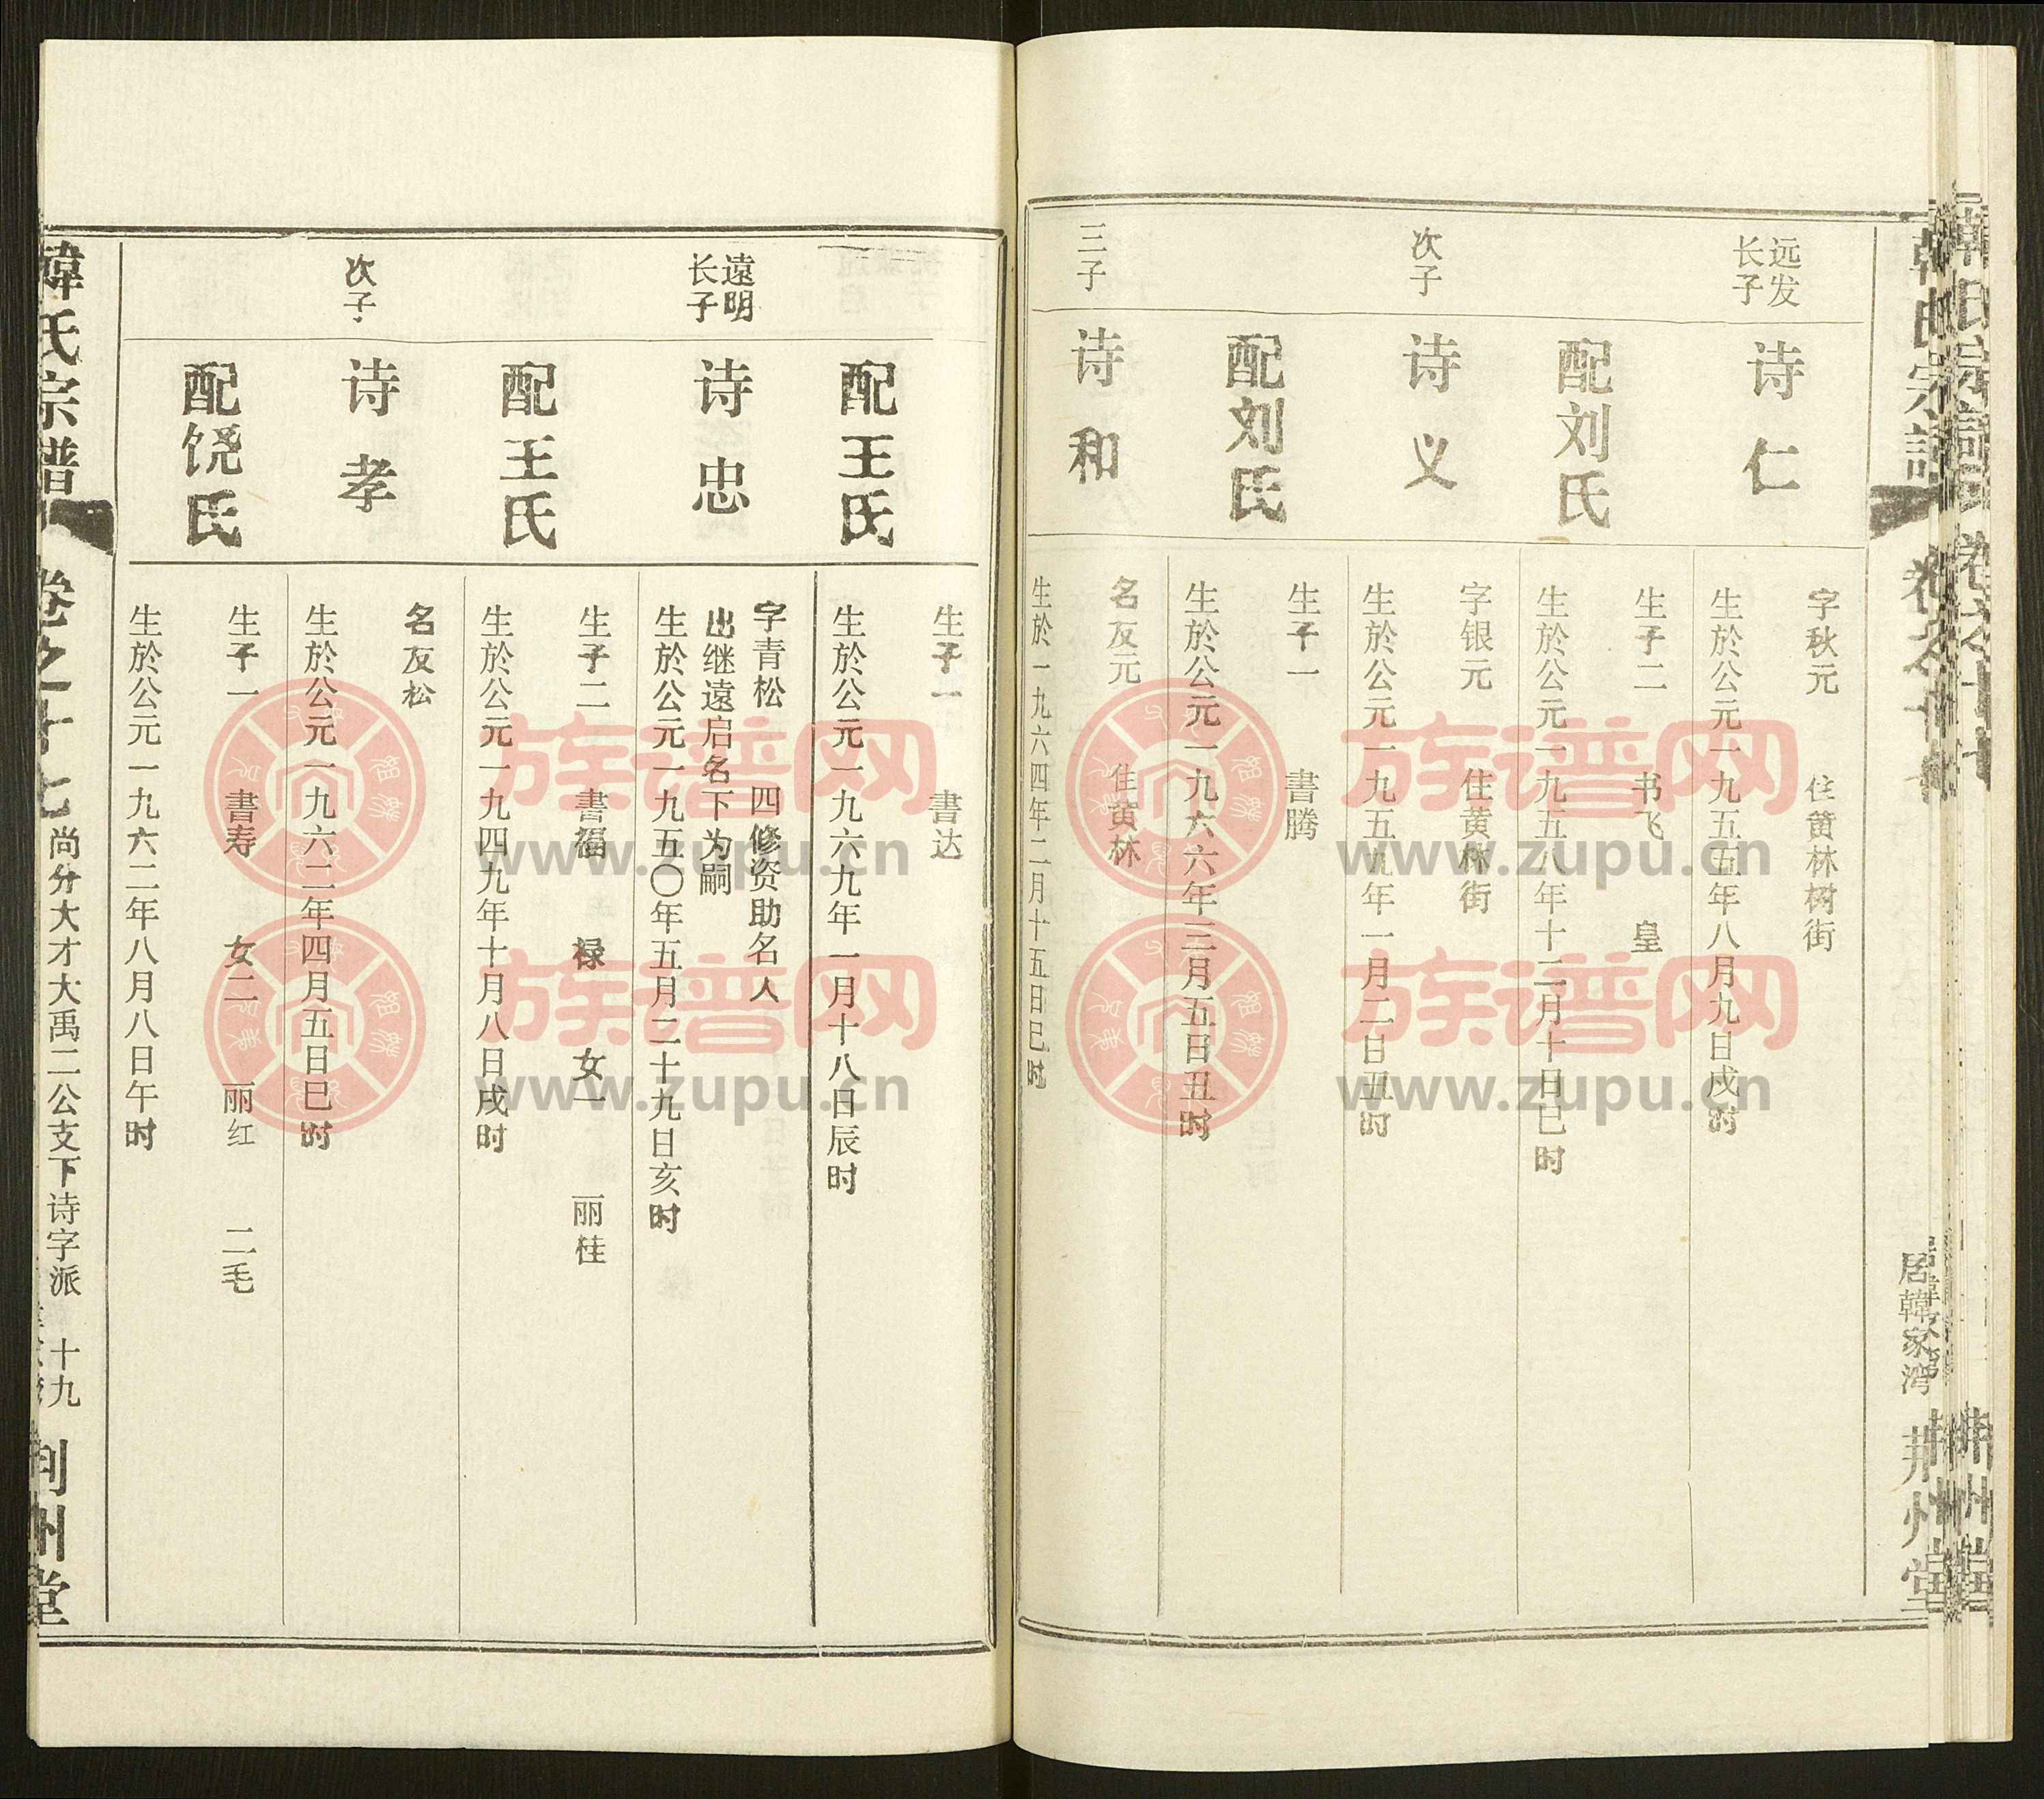 韓氏宗譜
卷之十七
居韓家湾
荆州堂
远发
长子
诗仁
字秋元 住黄林树街
生於公元一九五五年八月九日戍时
配刘氏
生子二 书飞 皇
生於公元一九五八年十二月十日巳时
次子
诗义
字银元 住黄林街
生於公元一九五九年一月二日丑时
配刘氏
生子一 書腾
生於公元一九六六年三月五日丑时
三子
诗和
名友元 住黄林
生於一九六四年二月十五日巳时
配王氏
生子一 書达
生於公元一九六九年一月十八日辰时
遠明
长子
诗忠
字青松 四修资助名人
出继遠启名下为嗣
生於公元一九五〇年五月二十九日亥时
配王氏
生子二 書福 禄 女一 丽桂
生於公元一九四九年十月八日戌时
次子
诗孝
名友松
生於公元一九六二年四月五日巳时
配饶氏
生子一 書寿 女二 丽红 二毛
生於公元一九六二年八月八日午时
韓氏宗谱
卷之十七
尚分大才大禹二公支下诗字派
十九
荆州堂
族谱网
www.zupu.cn
族谱网
www.zupu.cn
族谱网
www.zupu.cn
族谱网
www.zupu.cn